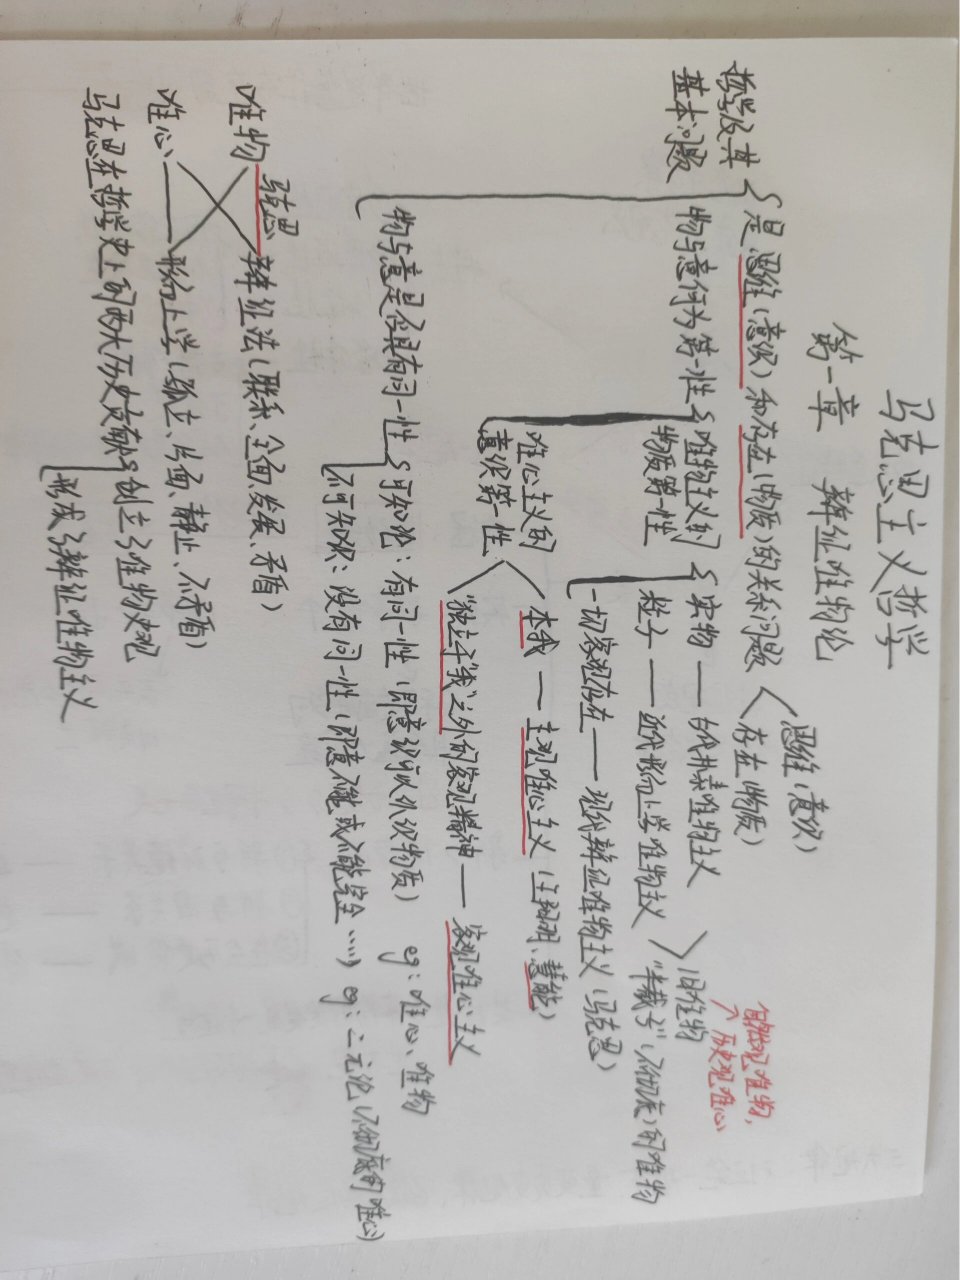 马克思主义哲学
第一章 辩证唯物论
思维(意识)
存在(物质)
哲学及其
基本问题
是思维(意识)和存在(物质)的关系问题
自然观唯物,
历史观唯心
物与意何为第一性
唯物主义的
物质第一性
实物——古代朴素唯物主义
粒子——近代形而上学唯物主义
旧唯物
"半截子"(不彻底)的唯物
一切客观存在——现代辩证唯物主义(马克思)
唯心主义的
意识第一性
本我——主观唯心主义(王阳明、慧能)
"独立于我"之外的客观精神——客观唯心主义
物与意是否具有同一性
可知论:有同一性(即意识可以认识物质) eg:唯心、唯物
不可知论:没有同一性(即意不能或不能完全……) eg:二元论(不彻底的唯心)
马克思
唯物 辩证法(联系、全面、发展、矛盾)
唯心 形而上学(孤立、片面、静止、不矛盾)
马克思在哲学史上的两大历史贡献 创立了唯物史观
形成了辩证唯物主义